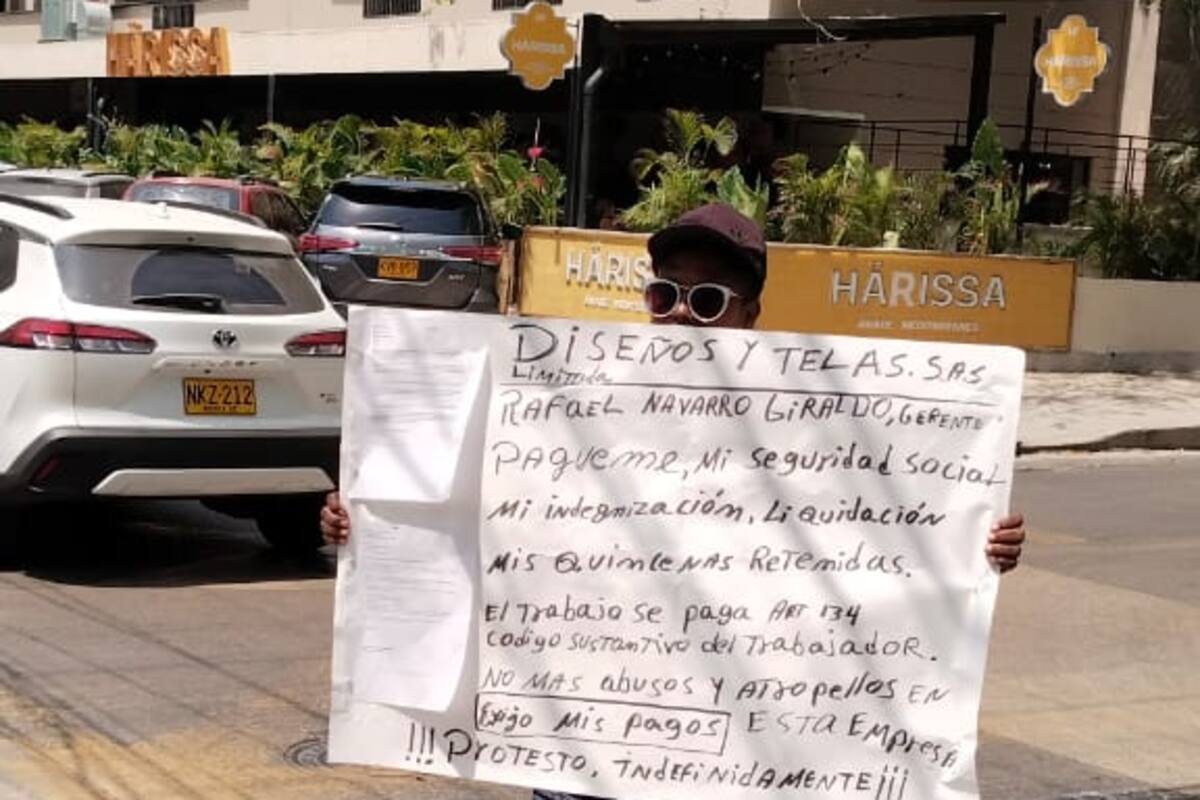 HÄRISSA
HÄRISSA
HÄRISSA
NKZ-212
HÄRISSA
HÄRISSA
DISEÑOS Y TELAS. SAS
LIMITADA
RAFAEL NAVARRO GIRALDO, GERENTE
PAGUEME, Mi seguridad social
Mi indegnización, Liquidación
Mis Quincenas Retemidas.
El Trabajo se paga ART 134
Codigo sustantivo del Trabajador.
NO MAS abusos y ATropellos EN
Exijo Mis pagos ESTA EMPRESA
!!! PROTESTO, INDEFINIDAMENTE ¡¡¡